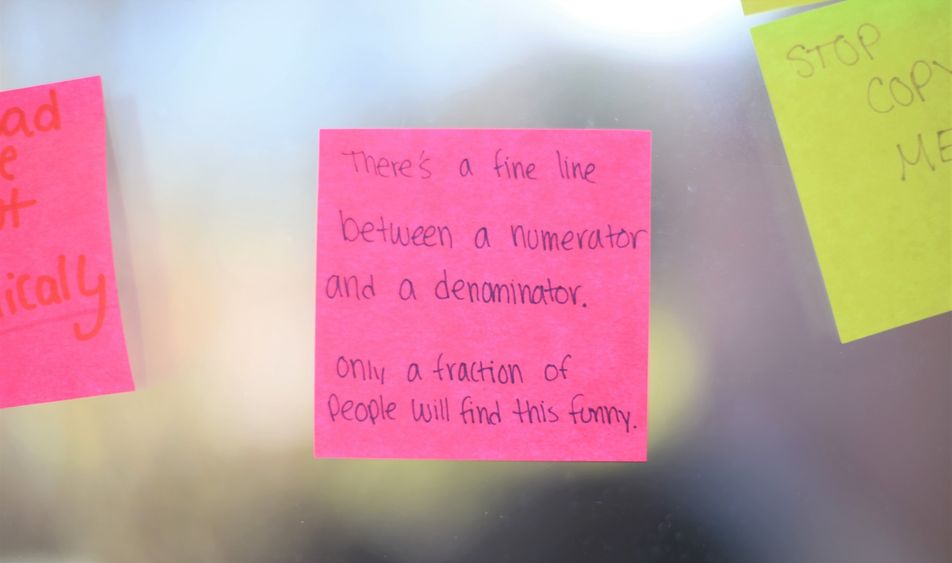 There's a fine line
between a numerator
and a denominator.
only a fraction of
People will find this funny.
STOP
COPY
ME